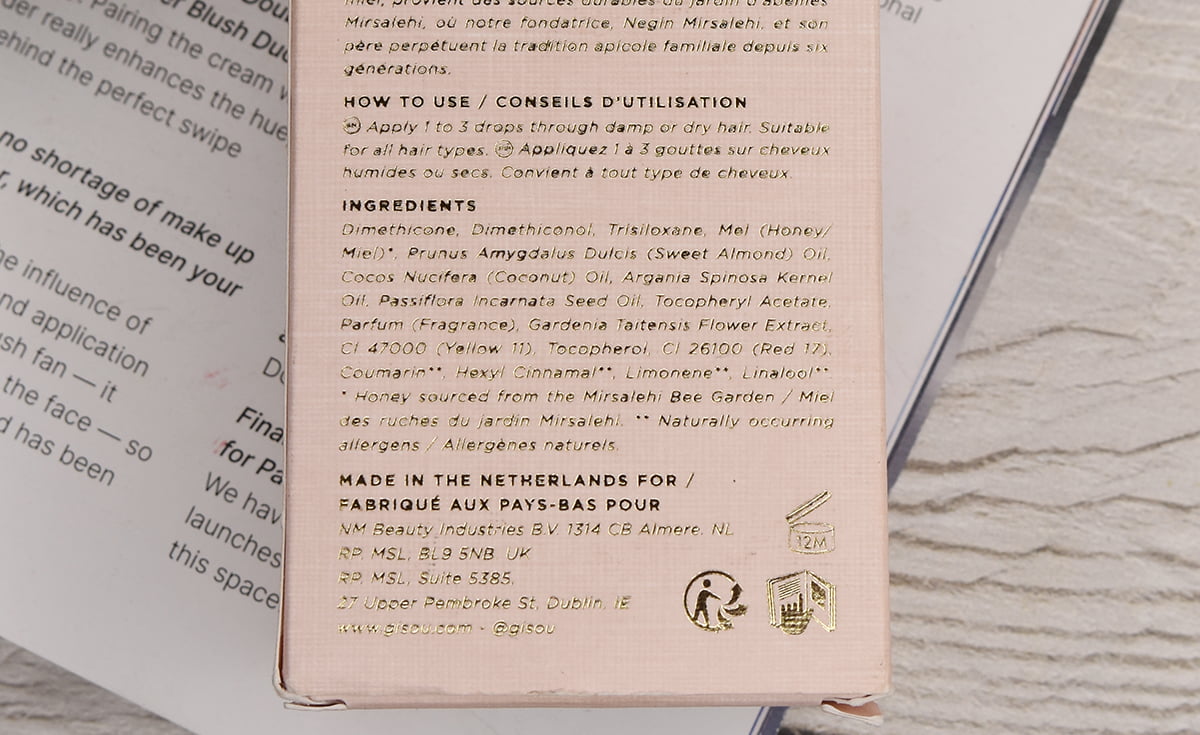 Dou
. Pairing the cream w
er Blush Duo
der really enhances the hue
ehind the perfect swipe
no shortage of make up
r, which has been your
he influence of
nd application
sh fan — it
the face — so
d has been
Fina
for Pa
We hav
launches
this space
onal
Mirsalehi, où notre fondatrice, Negin Mirsalehi, et son
père perpétuent la tradition apicole familiale depuis six
générations.
HOW TO USE / CONSEILS D'UTILISATION
EN Apply 1 to 3 drops through damp or dry hair. Suitable
for all hair types. FR Appliquez 1 à 3 gouttes sur cheveux
humides ou secs. Convient à tout type de cheveux.
INGREDIENTS
Dimethicone, Dimethiconol, Trisiloxane, Mel (Honey/
Miel)*, Prunus Amygdalus Dulcis (Sweet Almond) Oil,
Cocos Nucifera (Coconut) Oil, Argania Spinosa Kernel
Oil, Passiflora Incarnata Seed Oil, Tocopheryl Acetate,
Parfum (Fragrance), Gardenia Taitensis Flower Extract,
CI 47000 (Yellow 11), Tocopherol, CI 26100 (Red 17),
Coumarin**, Hexyl Cinnamal**, Limonene**, Linalool**
* Honey sourced from the Mirsalehi Bee Garden / Miel
des ruches du jardin Mirsalehi. ** Naturally occurring
allergens / Allergènes naturels.
MADE IN THE NETHERLANDS FOR /
FABRIQUÉ AUX PAYS-BAS POUR
NM Beauty Industries B.V. 1314 CB Almere, NL
RP, MSL, BL9 5NB UK
RP, MSL, Suite 5385,
27 Upper Pembroke St, Dublin, IE
www.gisou.com - @gisou
12M